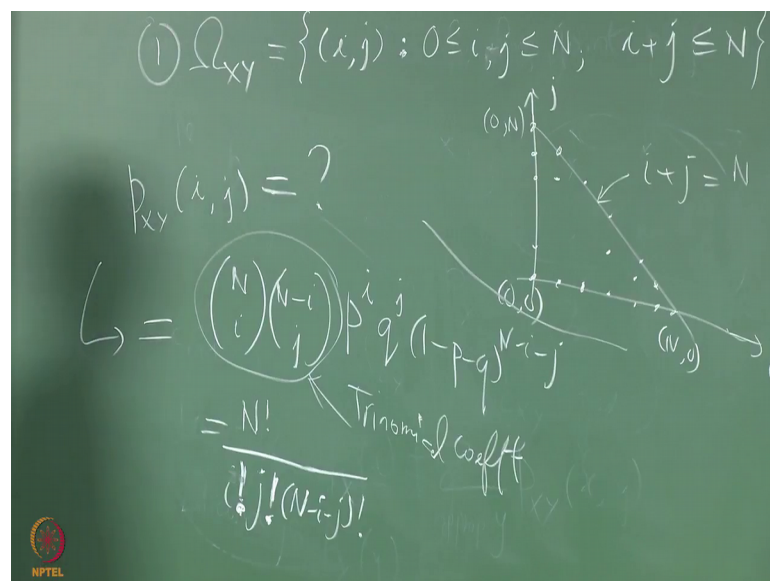 ① Ω_XY = {(i,j) : 0 ≤ i,j ≤ N, i+j ≤ N}
j
(0,N)
i+j = N
p_XY (i,j) = ?
(0,0)
(N,0)
↳ = (N i) (N-i j) p^i q^j (1-p-q)^{N-i-j}
Trinomial coefft
= N! / i! j! (N-i-j)!
NPTEL